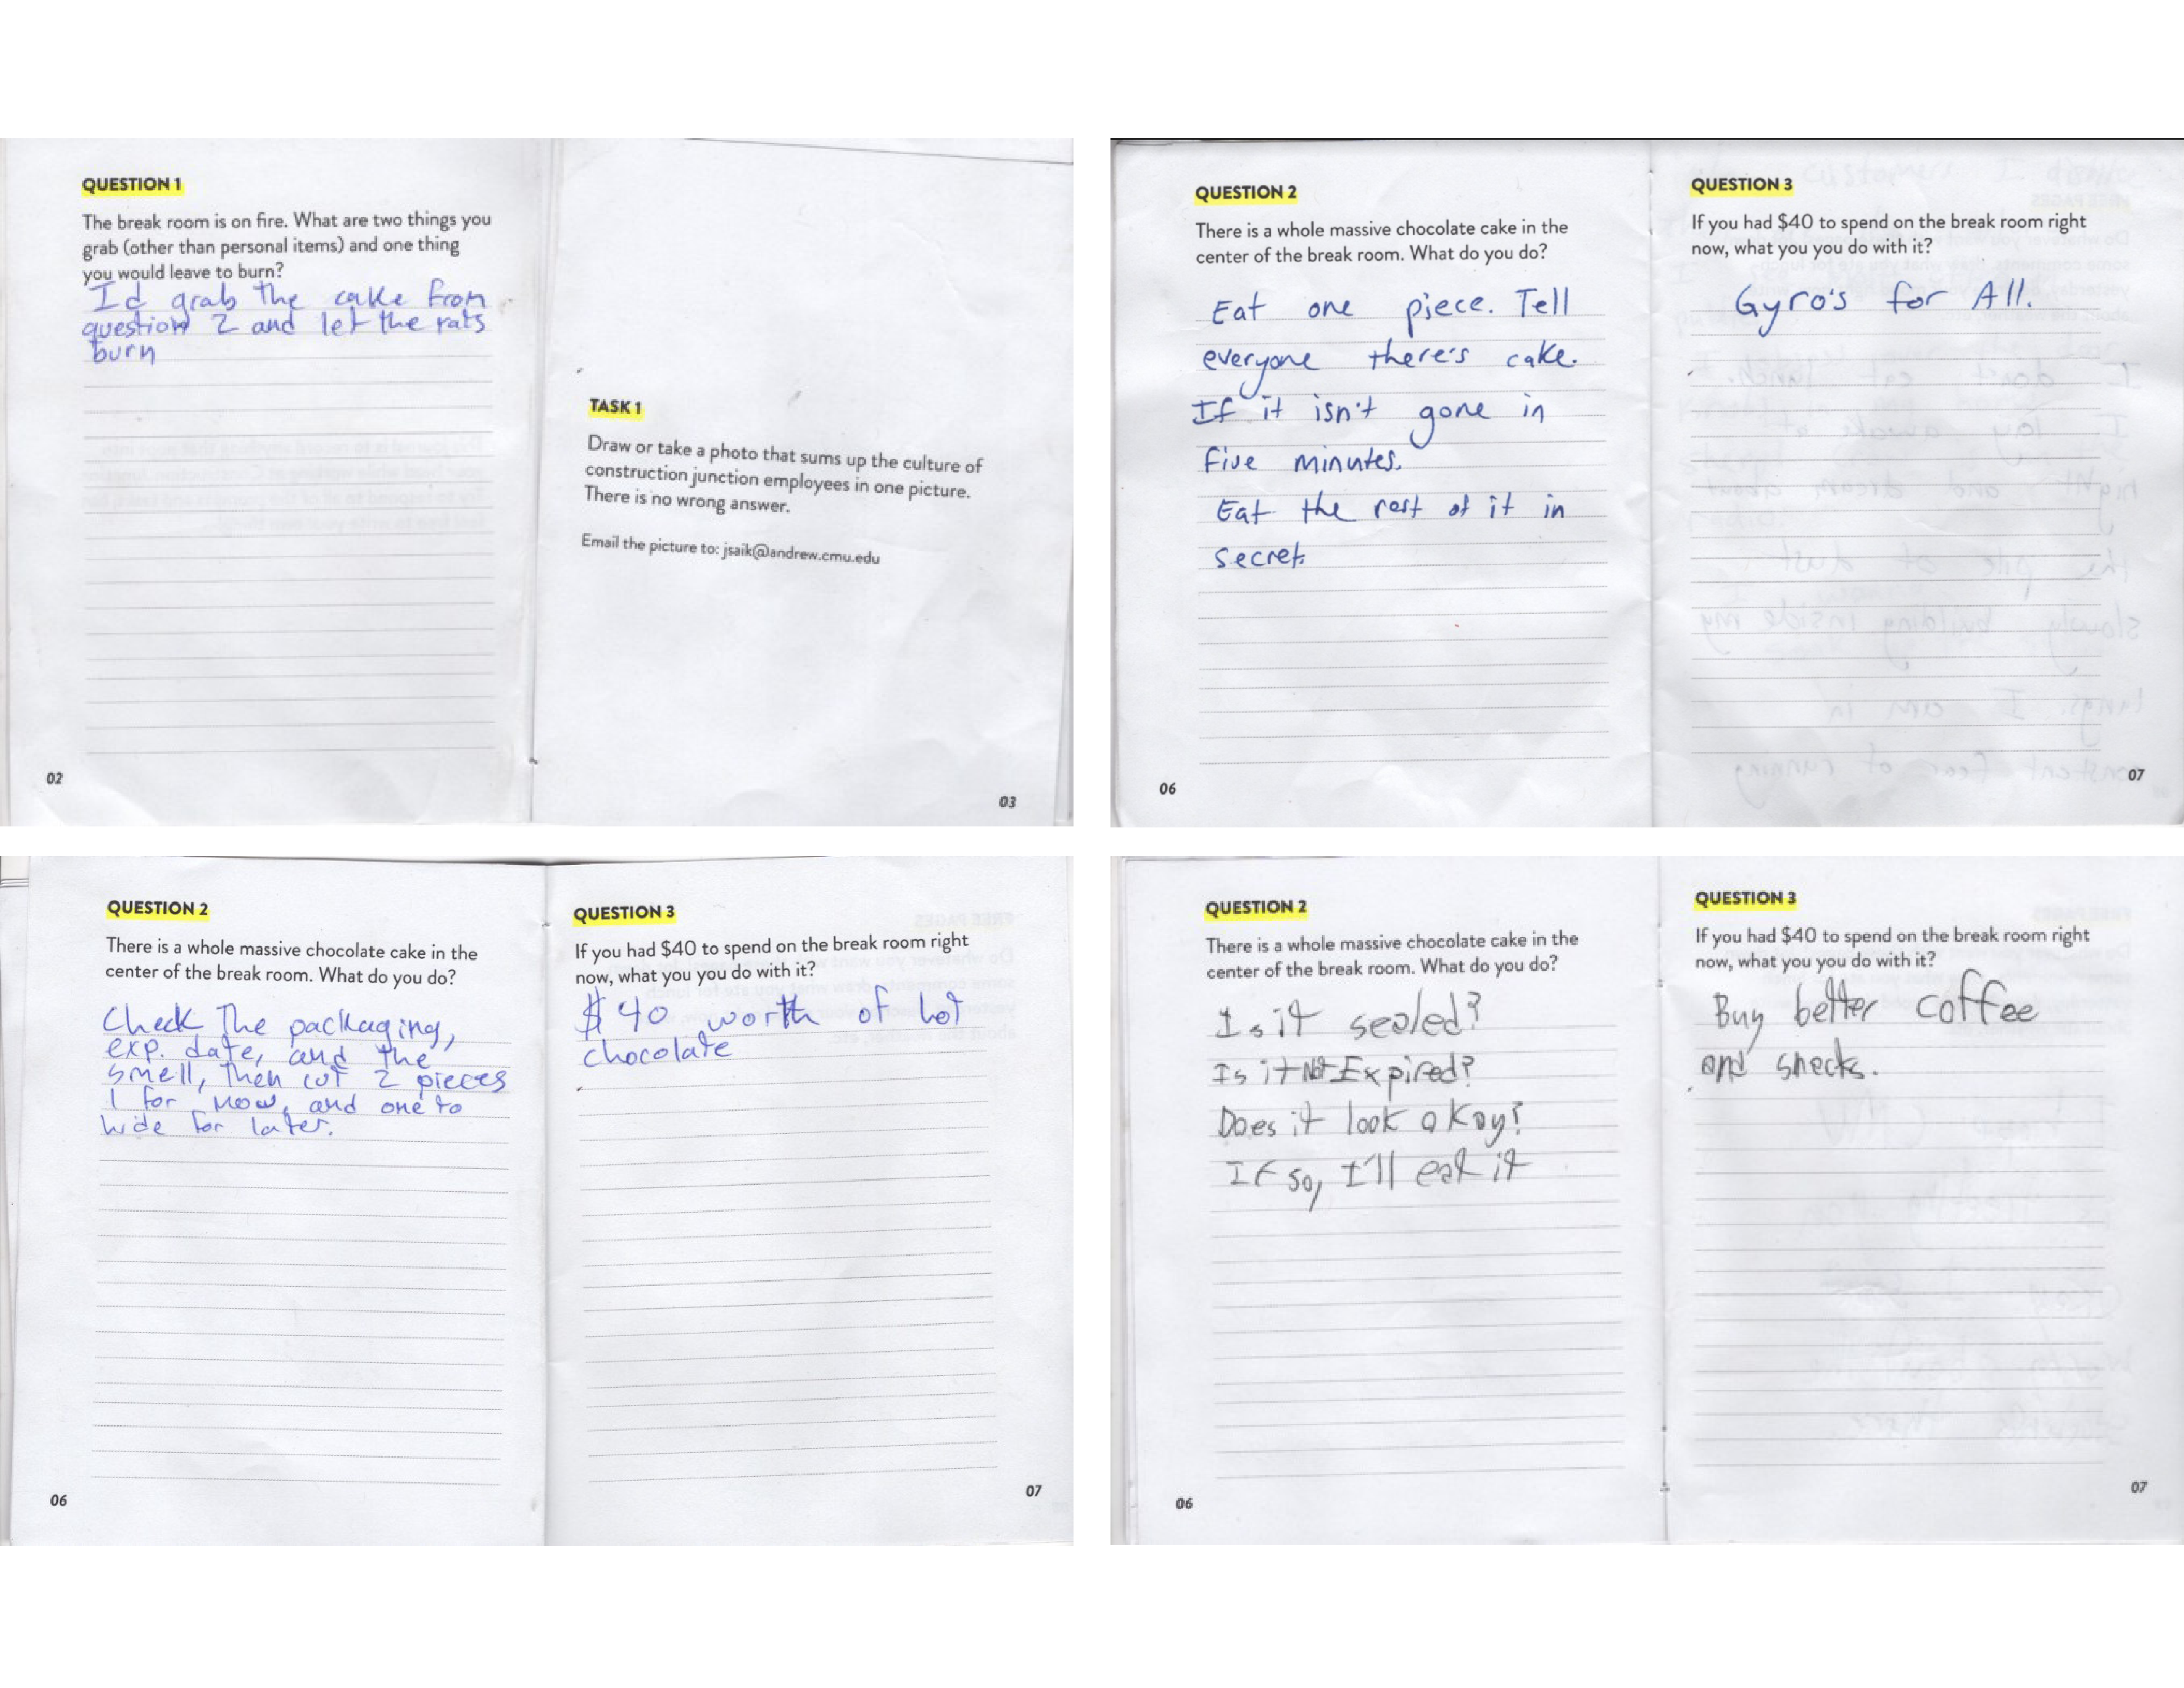 QUESTION 1
The break room is on fire. What are two things you
grab (other than personal items) and one thing
you would leave to burn?
I'd grab the cake from
question 2 and let the rats
burn
02
TASK 1
Draw or take a photo that sums up the culture of
construction junction employees in one picture.
There is no wrong answer.
Email the picture to: jsaik@andrew.cmu.edu
03
QUESTION 2
There is a whole massive chocolate cake in the
center of the break room. What do you do?
Eat one piece. Tell
everyone there's cake.
If it isn't gone in
five minutes.
Eat the rest of it in
secret.
06
QUESTION 3
If you had $40 to spend on the break room right
now, what you you do with it?
Gyro's for All.
07
QUESTION 2
There is a whole massive chocolate cake in the
center of the break room. What do you do?
Check The packaging,
exp. date, and the
smell, then cut 2 pieces
1 for now, and one to
hide for later.
06
QUESTION 3
If you had $40 to spend on the break room right
now, what you you do with it?
$40 worth of hot
chocolate
07
QUESTION 2
There is a whole massive chocolate cake in the
center of the break room. What do you do?
Is it sealed?
Is it Not Expired?
Does it look okay?
If so, I'll eat it
06
QUESTION 3
If you had $40 to spend on the break room right
now, what you you do with it?
Buy better coffee
and snacks.
07